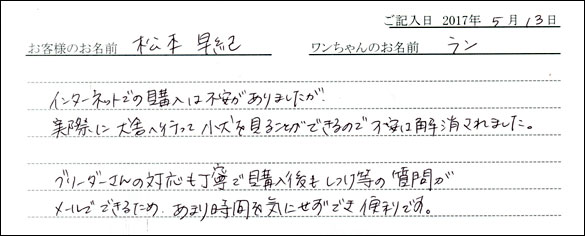 ご記入日 2017年 5月 13日
お客様のお名前 松本 早紀 ワンちゃんのお名前 ラン
インターネットでの購入は不安がありましたが、
実際に犬舎へ行って小犬を見ることができるので不安は解消されました。
ブリーダーさんの対応も丁寧で購入後もしつけ等の質問が
メールでできるため、あまり時間を気にせずでき便利です。